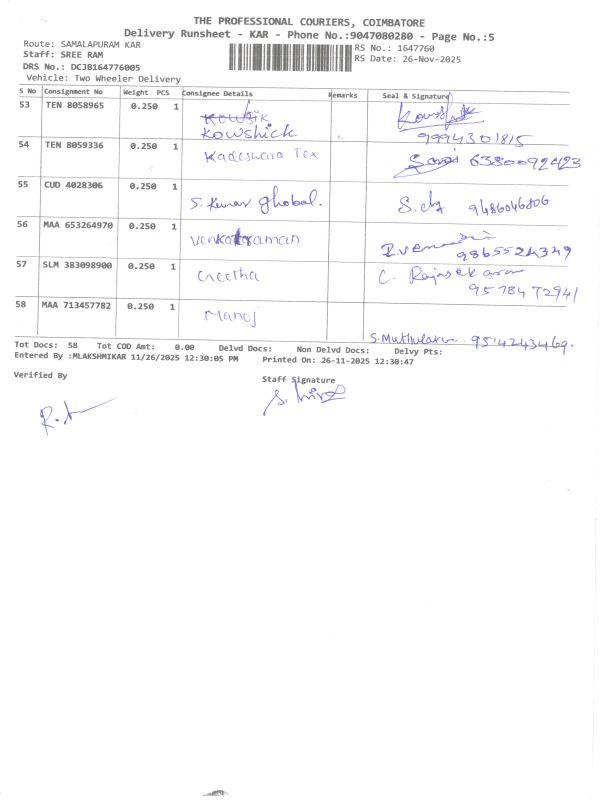 THE PROFESSIONAL COURIERS, COIMBATORE
Delivery Runsheet - KAR - Phone No.:9047080280 - Page No.:5
Route: SAMALAPURAM KAR
RS No.: 1647760
Staff: SREE RAM
RS Date: 26-Nov-2025
DRS No.: DCJB164776005
Vehicle: Two Wheeler Delivery
S No Consignment No Weight PCS Consignee Details Remarks Seal & Signature
53 TEN 8058965 0.250 1 Kowsik
Kowshick 9994301815
54 TEN 8059336 0.250 1 Kadeswara Tex 6380092423
55 CUD 4028306 0.250 1
S. Kumar ghobal. 9486046806
56 MAA 653264970 0.250 1
Venkatraman 9865524349
57 SLM 383098900 0.250 1 Geetha C. Rajasekaran
9578472941
58 MAA 713457782 0.250 1 Manoj
9514243469.
Tot Docs: 58 Tot COD Amt: 0.00 Delvd Docs: Non Delvd Docs: Delvy Pts:
Entered By :MLAKSHMIKAR 11/26/2025 12:30:05 PM Printed On: 26-11-2025 12:30:47
Verified By
Staff Signature